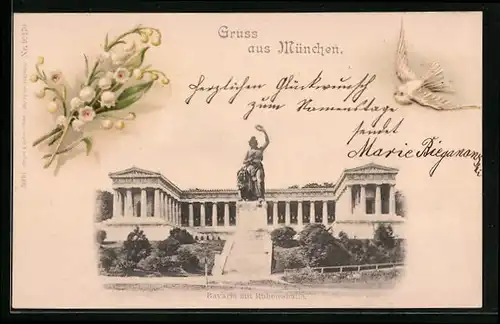 Gruss
aus München.
Herzlichen Glückwunsch
zum Namenstage
sendet
Marie
Bavaria mit Ruhmeshalle.